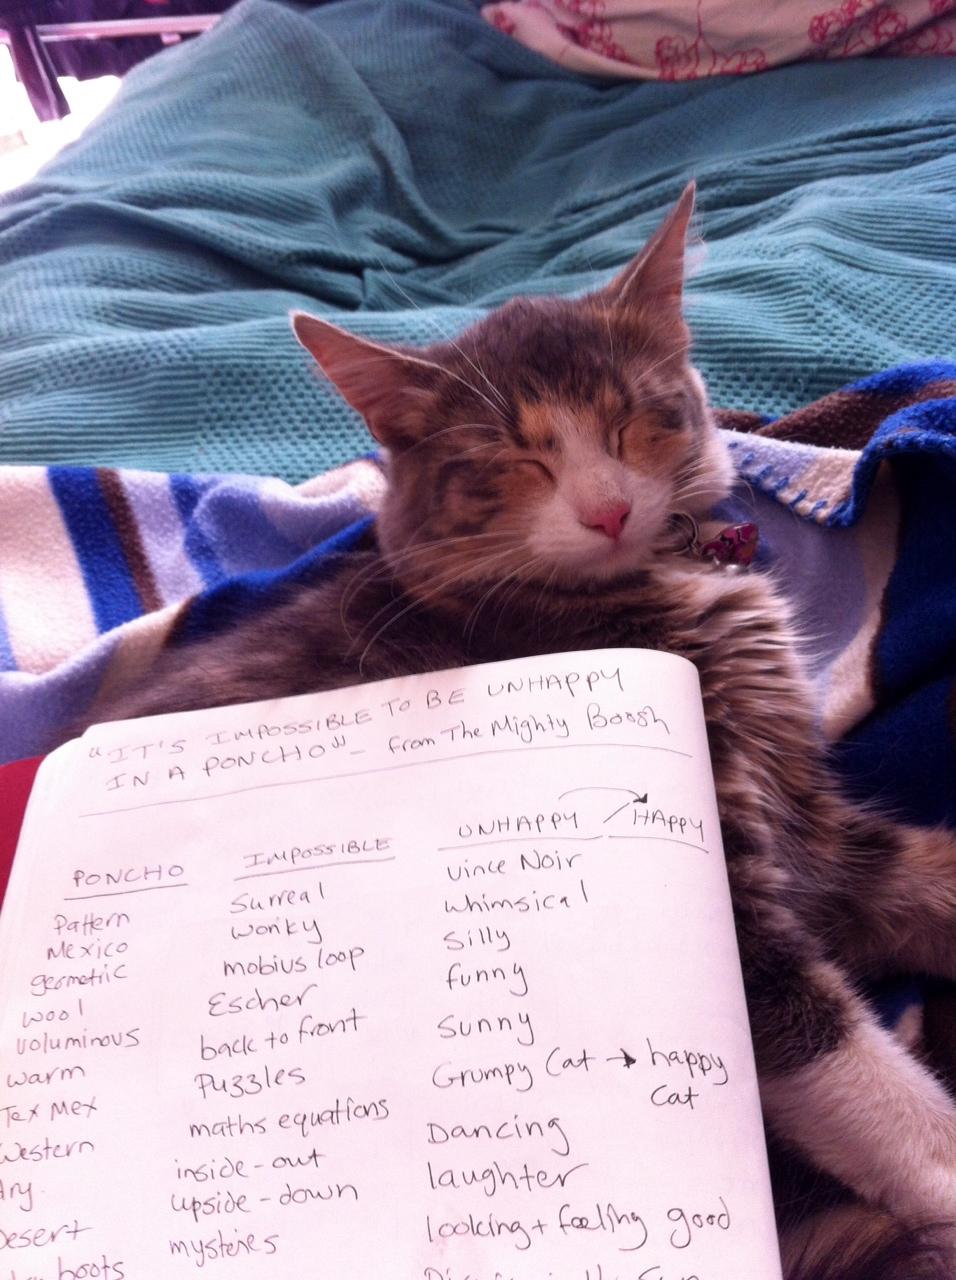 "IT'S IMPOSSIBLE TO BE UNHAPPY
IN A PONCHO" - from The Mighty Boosh
PONCHO
Pattern
Mexico
geometric
wool
voluminous
warm
Tex Mex
Western
Dry
Desert
boots
IMPOSSIBLE
Surreal
wonky
mobius loop
Escher
back to front
Puzzles
maths equations
inside-out
upside-down
mysteries
UNHAPPY / HAPPY
Vince Noir
whimsical
Silly
funny
Sunny
Grumpy Cat → happy
Cat
Dancing
laughter
looking + feeling good